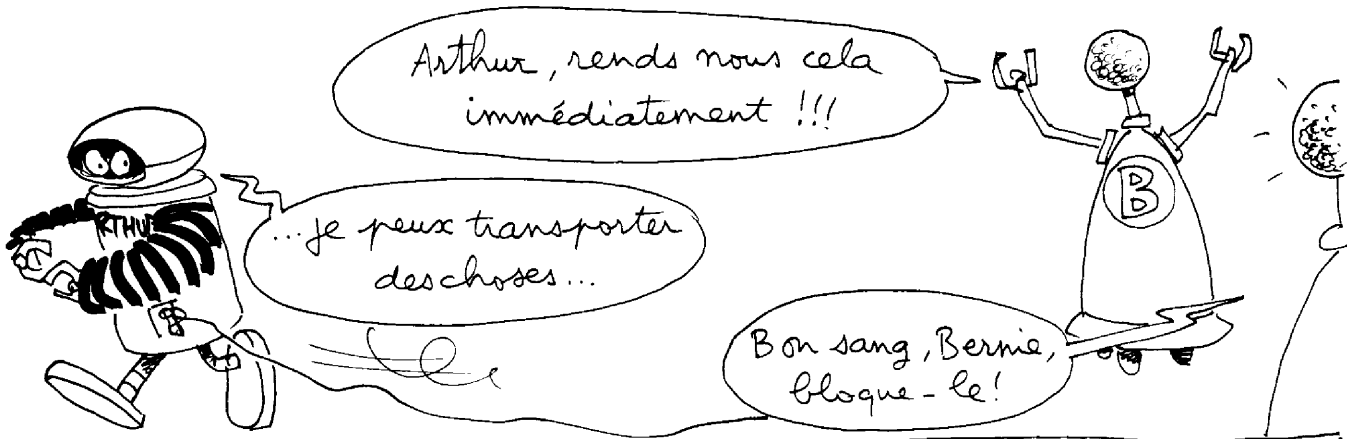 Arthur, rends nous cela
immédiatement !!!
RTHU
...je peux transporter
des choses...
B
Bon sang, Bernie,
bloque-le!